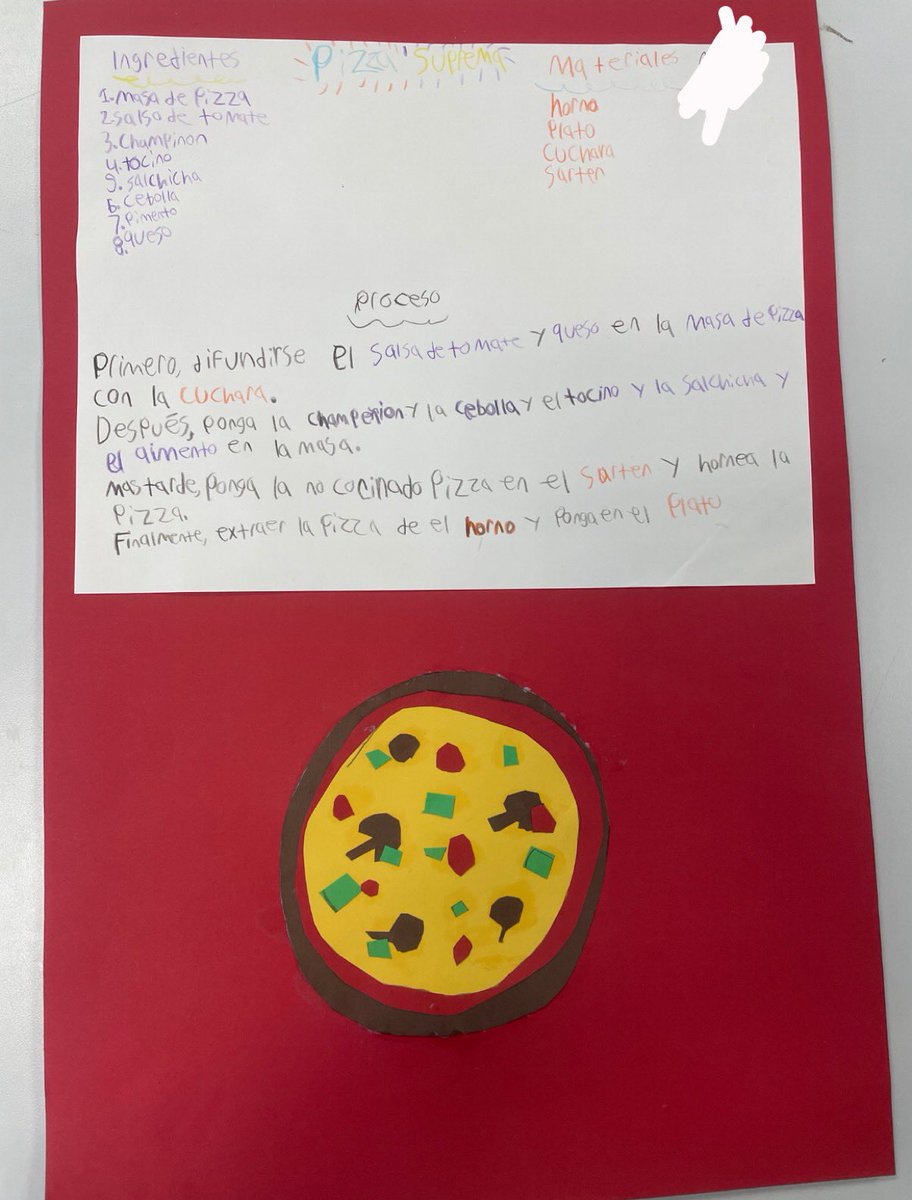 Ingredientes
1. masa de pizza
2 salsa de tomate
3. Champinon
4. tocino
5. salchicha
6. cebolla
7. Pimento
8. queso
Pizza Suprema
Materiales
horno
Plato
Cuchara
Sarten
proceso
Primero, difundirse el Salsa de tomate y queso en la masa de Pizza
con la cuchara.
Después, ponga la champenion y la cebolla y el tocino y la salchicha y
el aimento en la masa.
mas tarde, ponga la no cocinado Pizza en el Sarten y hornea la
Pizza.
Finalmente, extraer la Pizza de el horno y Ponga en el Plato